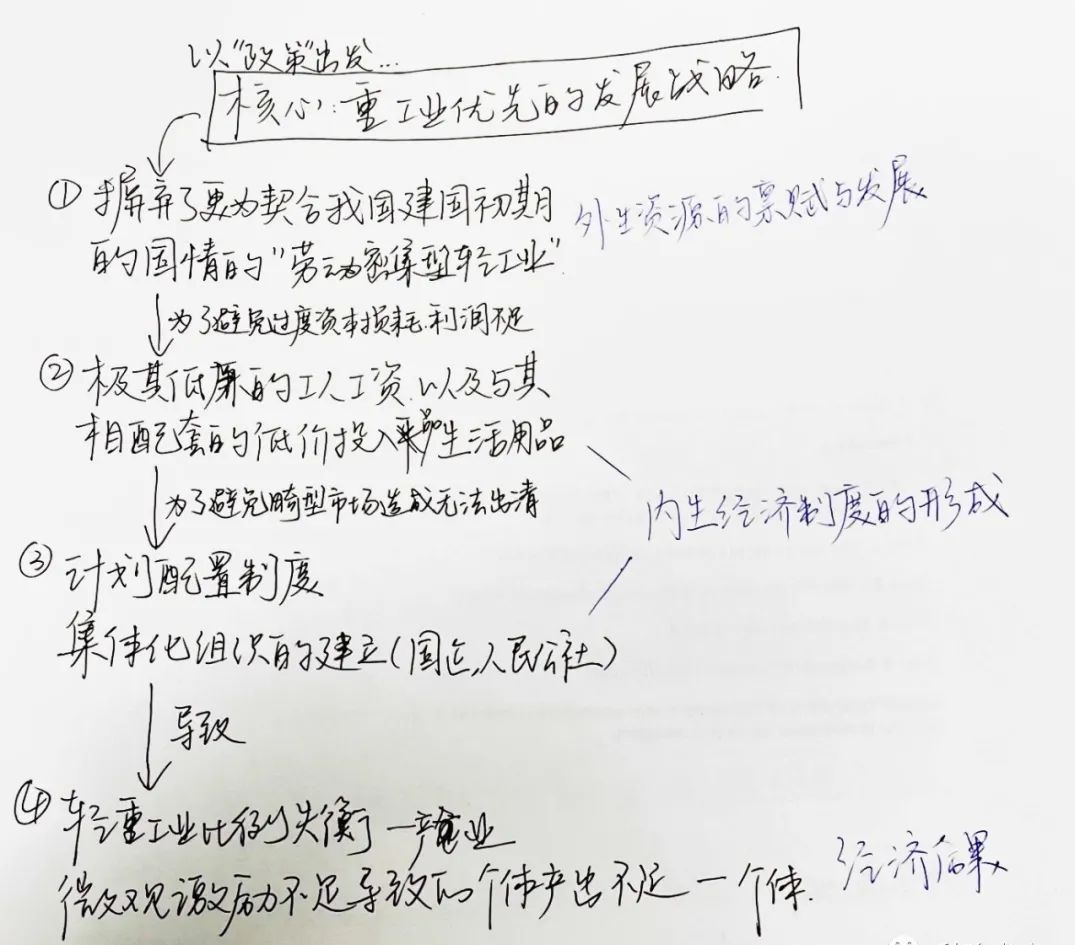 以“政策”出发...
核心：重工业优先的发展战略.
① 摒弃了更为契合我国建国初期 外生资源的禀赋与发展
的国情的“劳动密集型轻工业”
为了避免过度资本损耗.利润不足
② 极其低廉的工人工资.以及与其
相配套的低价投入品生活用品
为了避免畸型市场造成无法出清
内生经济制度的形成
③ 计划配置制度
集体化组织的建立(国企,人民公社)
导致
④ 轻重工业比例失衡 — 产业
微观激励不足导致的个体产出不足 — 个体. 经济后果